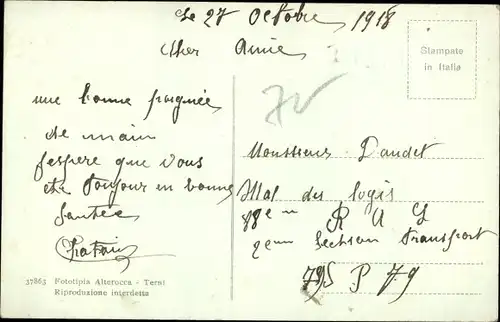 Le 27 Octobre 1918
Cher Amie
Stampate
in Italia
une bonne poignée
de main
j'espere que vous
ete toujour en bonne
Santée
Monsieur Daudet
Mal des logis
R A L
2eme Section Transport
P 79
37863 Fototipia Alterocca - Terni
Riproduzione interdetta